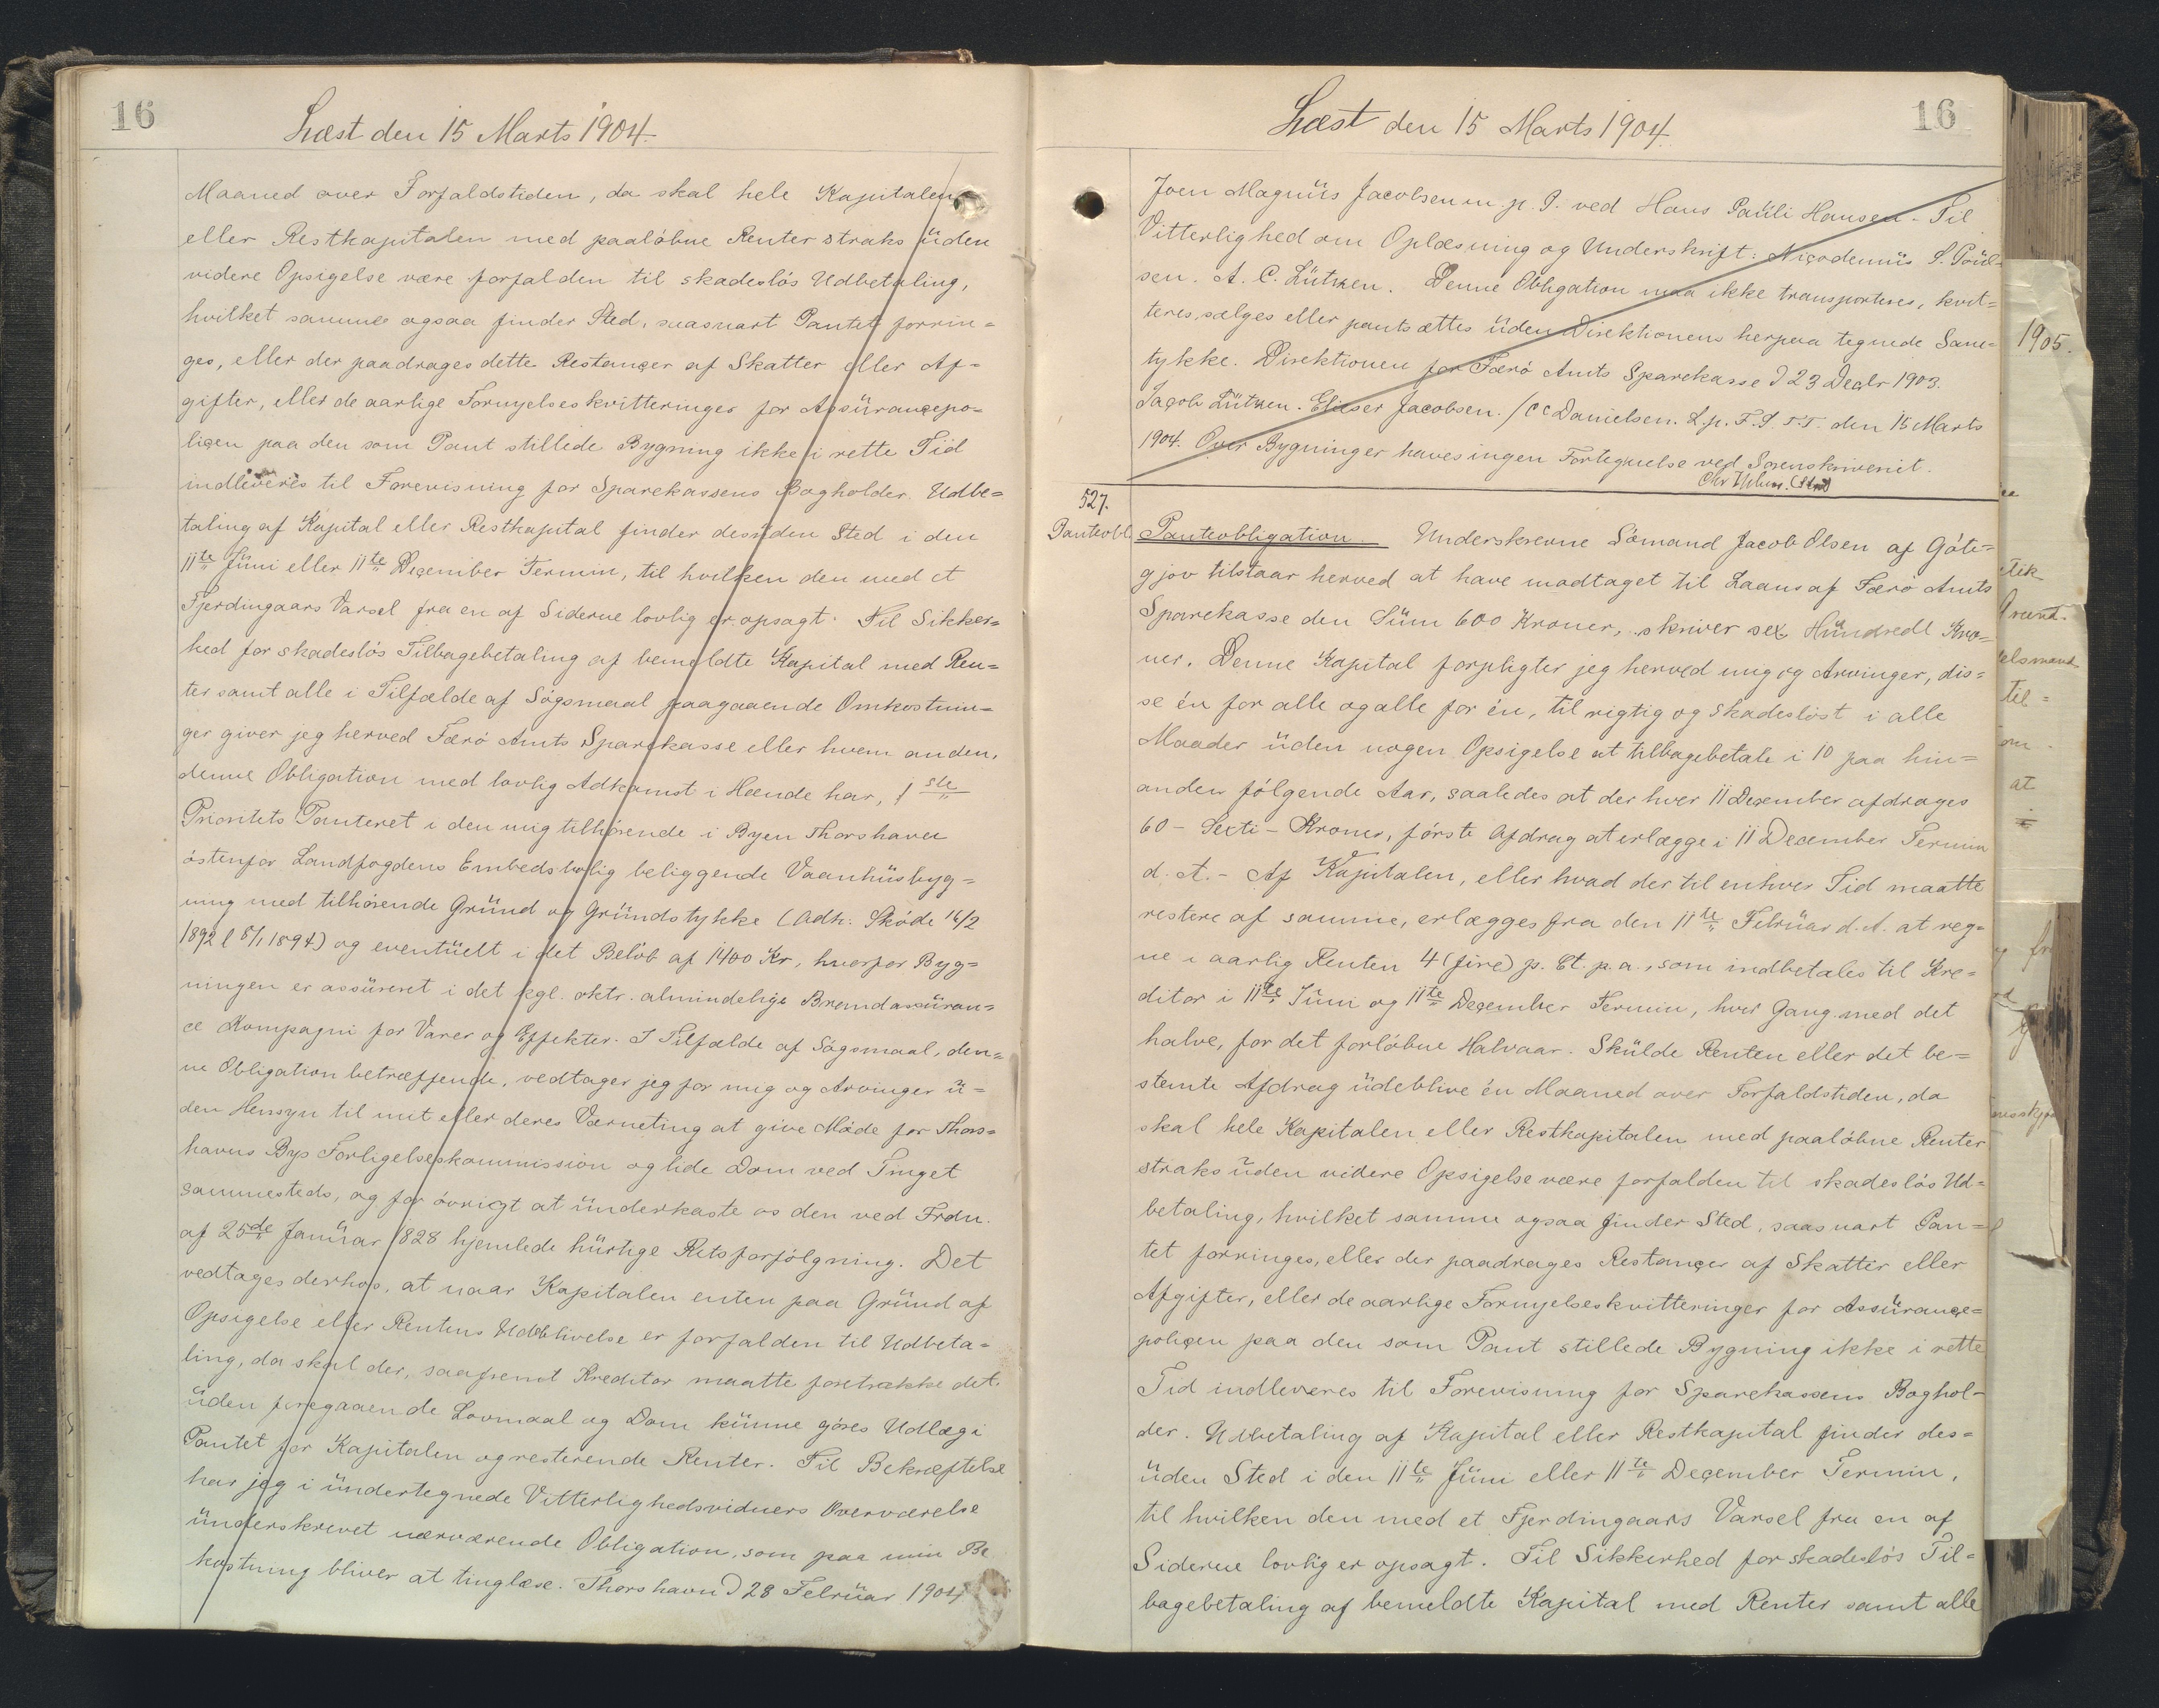 16
Læst den 15 Marts 1904.
Maaned over Forfaldstiden, da skal hele Kapitalen
eller Restkapitalen med paaløbne Renter straks uden
videre Opsigelse være forfalden til skadesløs Udbetaling,
hvilket samme ogsaa finder Sted, saasnart Pantet forrin=
ges, eller der paadrages dette Restancer af Skatter eller Af=
gifter, eller de aarlige Fornyelseskvitteringer for Assürancepo=
licen paa den som Pant stillede Bygning ikke i rette Tid
indleveres til Forevisning for Sparekassens Bogholder. Udbe=
taling af Kapital eller Restkapital finder desuden Sted i den
11te Juni eller 11te December Termin, til hvilken den med et
Fjerdingaars Varsel fra en af Siderne lovlig er opsagt. Til Sikker=
hed for skadesløs Tilbagebetaling af bemeldte Kapital med Ren=
ter samt alle i Tilfælde af Søgsmaal paagaaende Omkostnin=
ger giver jeg herved Færø Amts Sparekasse eller hvem anden,
denne Obligation med lovlig Adkomst i Hænde har, 1ste
Prioritets Panteret i den mig tilhørende i Byen Thorshavn
østenfor Landfogdens Embedsbolig beliggende Vaanhüsbyg=
ning med tilhørende Grund og Grundstykke (Adk: Skøde 16/2
1892 l 8/1 1894) og eventuelt i det Beløb af 1400 Kr, hvorfor Byg=
ningen er assureret i det kgl. oktr. almindelige Brandassuran=
ce Kompagni for Varer og Effekter. I Tilfælde af Søgsmaal, den=
ne Obligation betræffende, vedtager jeg for mig og Arvinger u=
den Hensyn til mit eller deres Værneting at give Møde for Thors=
havns Bys Forligelseskommission og lide Dom ved Tinget
sammesteds, og for øvrigt at underkaste os den ved Frdn.
af 25de Januar 1828 hjemlede hurtige Retsforfølgning. Det
vedtages derhos, at naar Kapitalen enten paa Grund af
Opsigelse eller Rentens Udeblivelse er forfalden til Udbeta=
ling, da skal der, saafremt Kreditor maatte foretrække det,
uden foregaaende Lovmaal og Dom kunne gøres Udlæg i
Pantet for Kapitalen og resterende Renter. Til Bekræftelse
har jeg i undertegnede Vitterlighedsvidners Overværelse
underskrevet nærværende Obligation, som paa min Be
kostning bliver at tinglæse. Thorshavn D 28 Februar 1904
16
Læst den 15 Marts 1904.
Joen Magnus Jacobsen m. p. P. ved Hans Pauli Hansen - Til
Vitterlighed om Oplæsning og Underskrift: Nicodemus S. Poul=
sen. A. C. Lützen. Denne Obligation maa ikke transporteres, kvit=
teres, sælges eller pantsættes uden Direktionens herpaa tegnede Sam=
tykke. Direktionen for Færø Amts Sparekasse D 23 Decbr 1903.
Jacob Lützen. Elieser Jacobsen. / CC Danielsen. L. p. F. S. T. T. den 15 Marts
1904. Over Bygninger haves ingen Fortegnelse ved Sorenskriveriet.
527.
Panteobl
Panteobligation Underskrevne Sømand Jacob Olsen af Gøte=
gjov tilstaar herved at have modtaget til Laans af Færø Amts
Sparekasse den Sum 600 Kroner, skriver sex Hundrede Kro=
ner. Denne Kapital forpligter jeg herved mig og Arvinger, dis=
se én for alle og alle for én, til rigtig og skadesløst i alle
Maader uden nogen Opsigelse at tilbagebetale i 10 paa hin=
anden følgende Aar, saaledes at der hver 11 December afdrages
60 - Sexti - Kroner, første Afdrag at erlægge i 11 December Termin
d. A. - Af Kapitalen, eller hvad der til enhver Tid maatte
restere af samme, erlægges fra den 11te Februar d. A. at reg=
ne i aarlig Renten 4 (fire) p. Ct. p. a., som indbetales til Kre=
ditor i 11te Juni og 11te December Termin, hver Gang med det
halve, for det forløbne Halvaar. Skulde Renten eller det be=
stemte Afdrag udeblive én Maaned over Forfaldstiden, da
skal hele Kapitalen eller Restkapitalen med paaløbne Renter
straks uden videre Opsigelse være forfalden til skadesløs Ud=
betaling, hvilket samme ogsaa finder Sted, saasnart Pan=
tet forringes, eller der paadrages Restancer af Skatter eller
Afgifter, eller de aarlige Fornyelseskvitteringer for Assurance=
policen paa den som Pant stillede Bygning ikke i rette
Tid indleveres til Forevisning for SparekassensBoghol=
der. Udbetaling af Kapital eller Restkapital finder des=
uden Sted i den 11te Juni eller 11te December Termin,
til hvilken den med et Fjerdingaars Varsel fra en af
Siderne lovlig er opsagt. Til Sikkerhed for skadesløs Til=
bagebetaling af bemeldte Kapital med Renter samt alle
1905.
til=
om
at